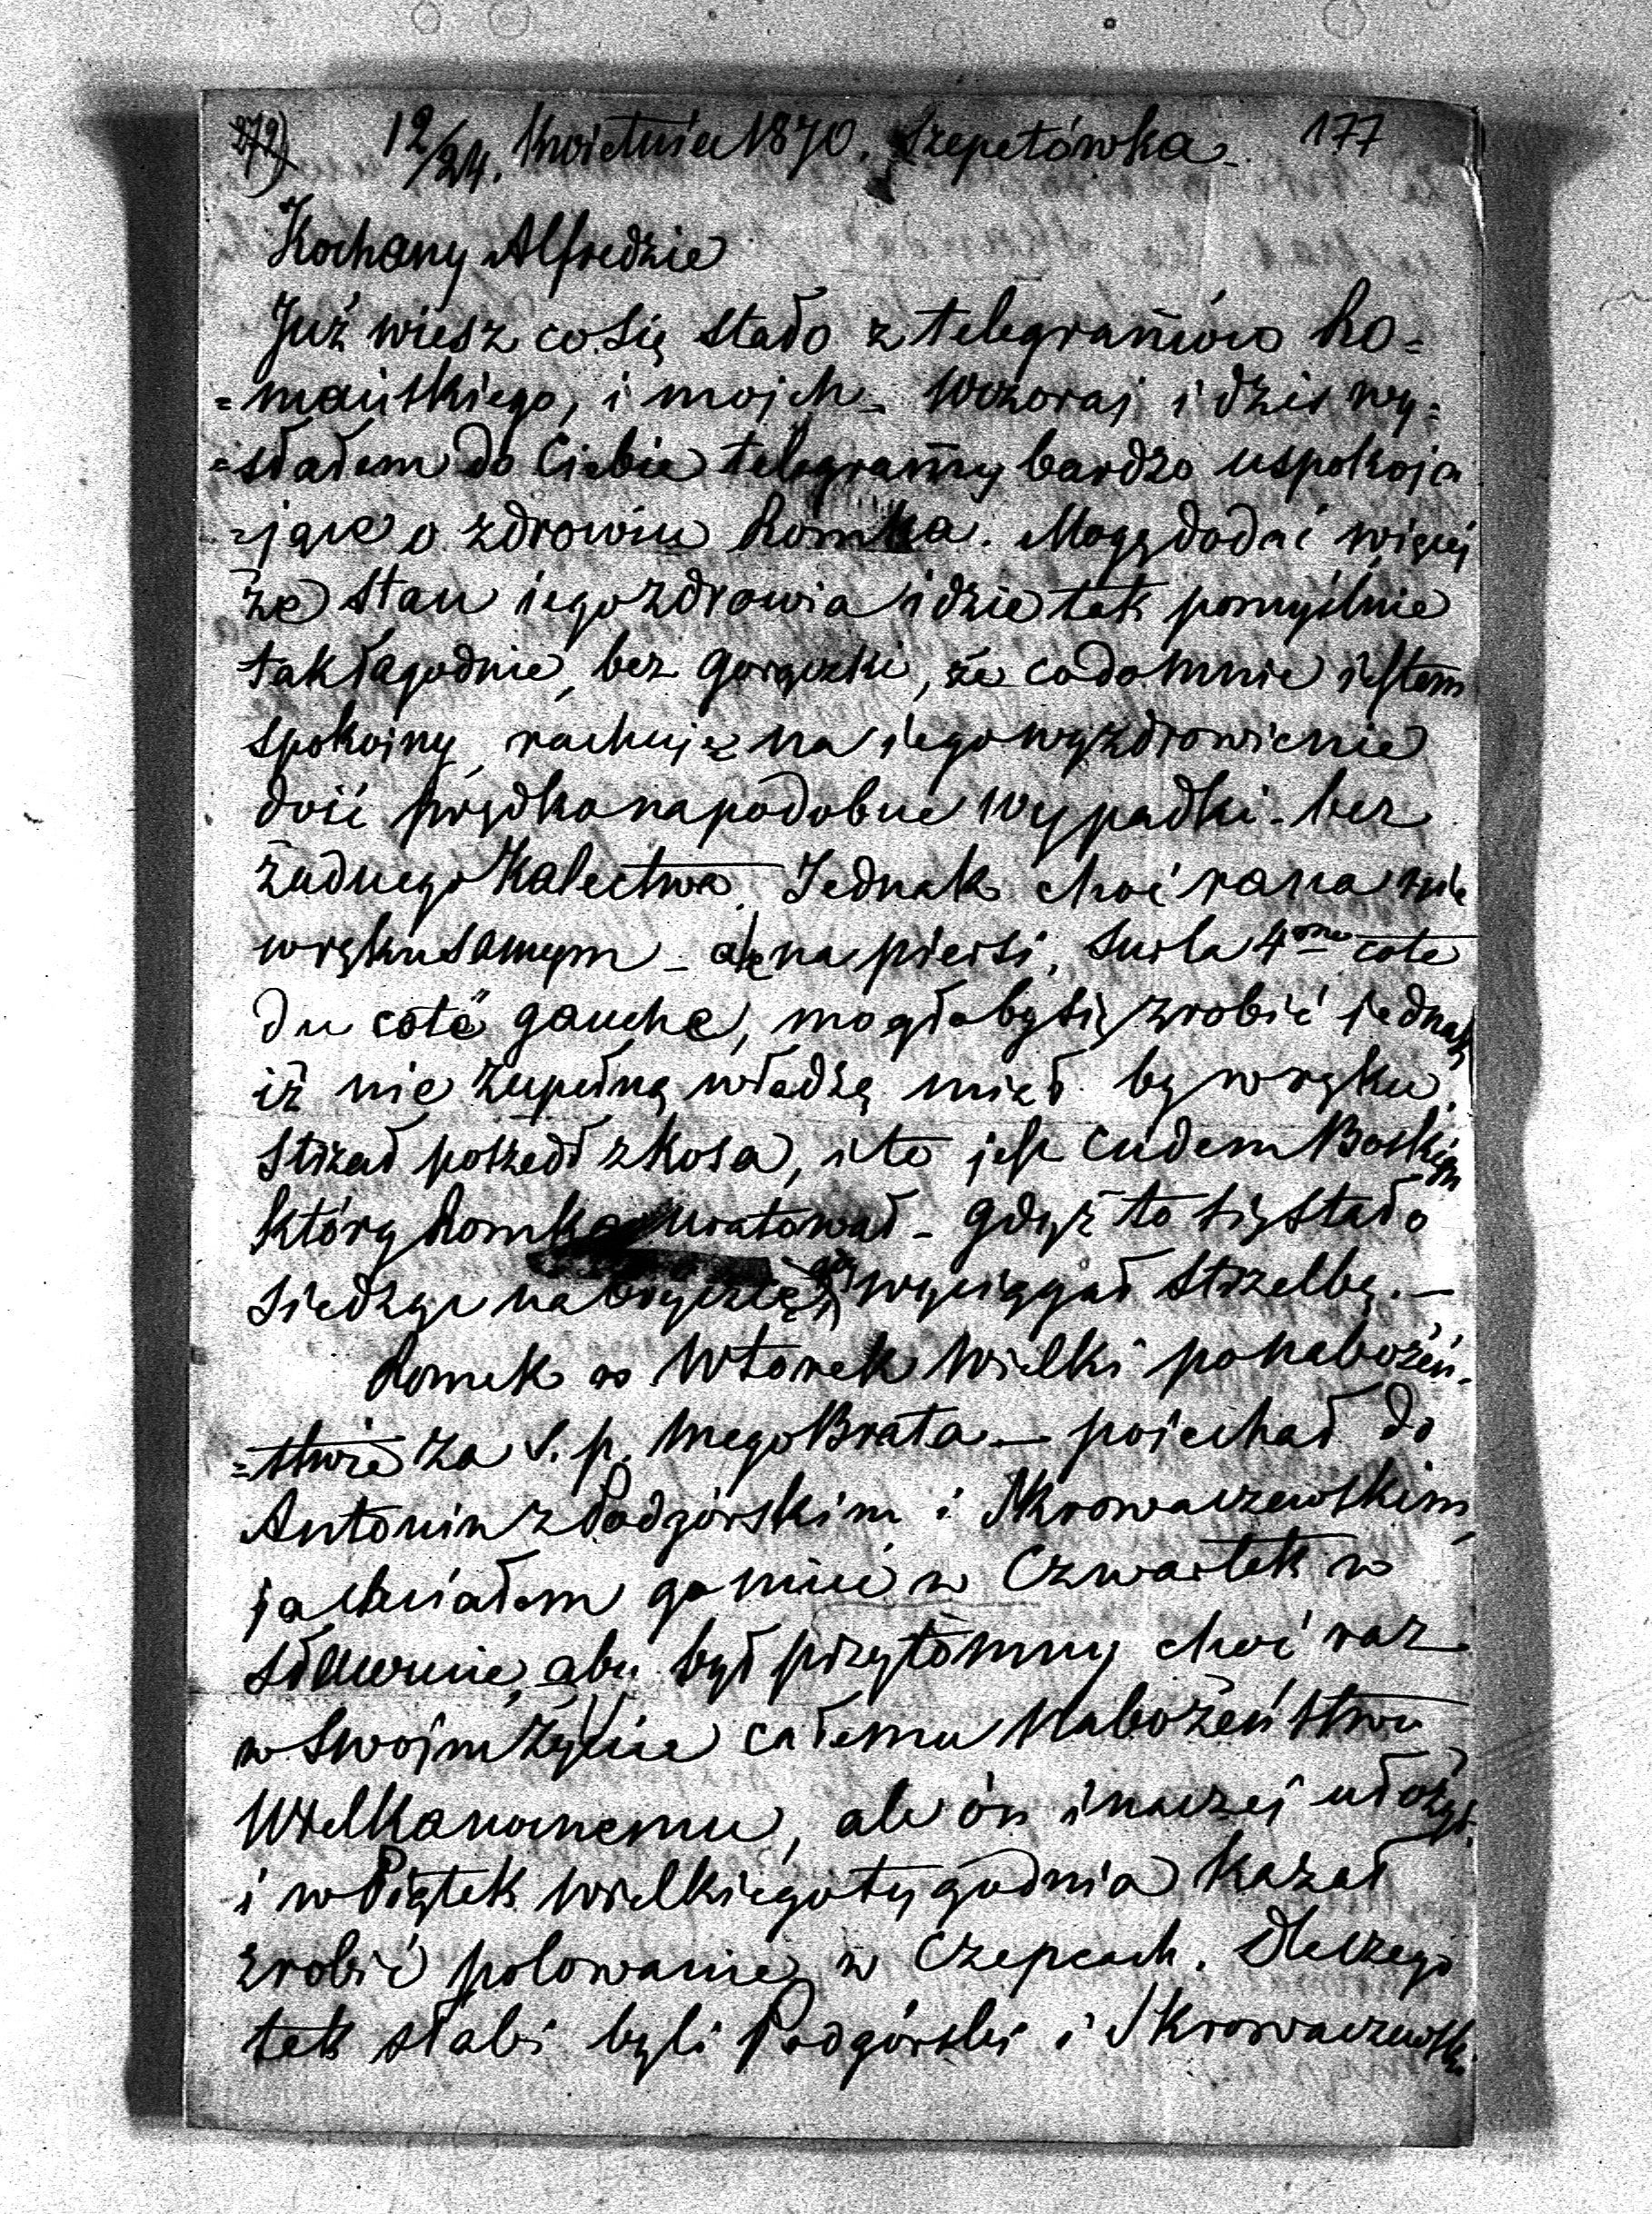 272) 12/24. Kwietnia 1870. Szepetówka. 177
Kochany Alfredzie
Już wiesz co się stało z telegramów Ro=
=mańskiego, i mojch_ Wczoraj i dziś wy=
=słałem do Ciebie telegramy bardzo uspokoja
=jące o zdrowiu Romka. Mogę dodać więcej
że stan iego zdrowia idzie tak pomyślnie
tak łagodnie, bez gorączki, że co do mnie iestem
spokoiny, rachuję na iego wyzdrowienie
dość prędko na podobne wypadki - bez
żadnego Kalectwa. Jednak choć rana nie
w ręku samym - ale na piersi, sur la 4me cote
du coté gauche, mogłoby się zrobić jednak
iż nie zupełną władzę miał by w ręku.
Strzał poszedł z kosa, i to jest cudem Boskim
który Romka uratował - gdyż to się stało
siedząc na bryczce, gdy wyciągał strzelbę. —
Romek w Wtorek Wielki po nabożeń-
=stwie za S. p. mego Brata — poiechał do
Antonin z Podgórskim i Skrowaczewskim,
ja chciałem go mieć w Czwartek w
Sławucie, aby był przytomny choć raz
w swojm życiu całemu Nabożeństwu
Wielkanocnemu, ale ón inaczej ułożył.
i w Piątek Wielkiego tygodnia kazał
zrobić polowanie w Czepcach. Dlaczego
tak słabi byli Podgórski i Skrowaczewski